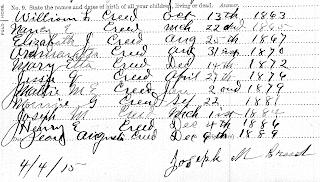 No. 9. State the names and dates of birth of all your children, living or dead. Answer.
William T. Creed Oct 13th 1863
Nancy E Creed Mch 22nd 1865
Elizabeth J Creed Aug 25th 1867
Creed Aug 31st 1870
Mary Ella Creed Dec 14th 1872
Creed April 27th 1876
Mattie M E Creed Jan 2nd 1879
Minnie G Creed Sep 22 1881
Joseph M Creed Mch 1st 1884
Henry E Creed Dec 4th 1886
Georg Augusta Creed Dec 9th 1889
4/4/15
Joseph M Creed